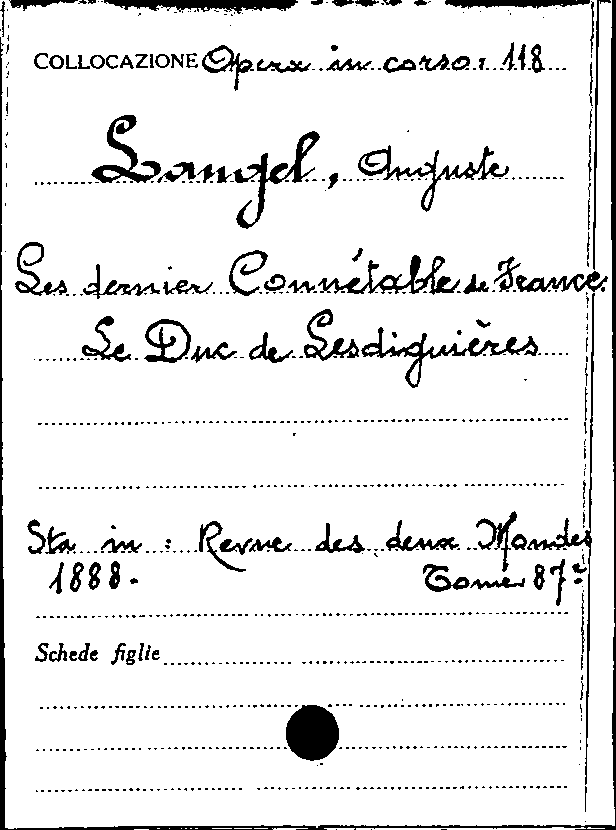 COLLOCAZIONE Opera in corso: 118
Laugel, Auguste
Les dernier Connétable de France.
Le Duc de Lesdiguières
Sta in: Revue des deux Mondes
1888. Tome 87º
Schede figlie